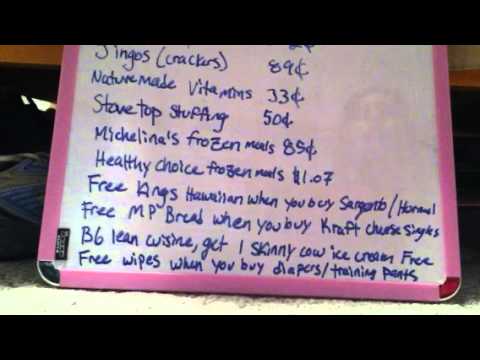 2¢
Jingos (crackers) 89¢
Nature made Vitamins 33¢
Stove top Stuffing 50¢
Michelina's frozen meals 85¢
Healthy choice frozen meals $1.07
Free Kings Hawaiian when you buy Sargento/Hormel
Free MP Bread when you buy Kraft cheese singles
B6 lean cuisine, get 1 skinny cow ice cream Free
Free wipes when you buy diapers/training pants